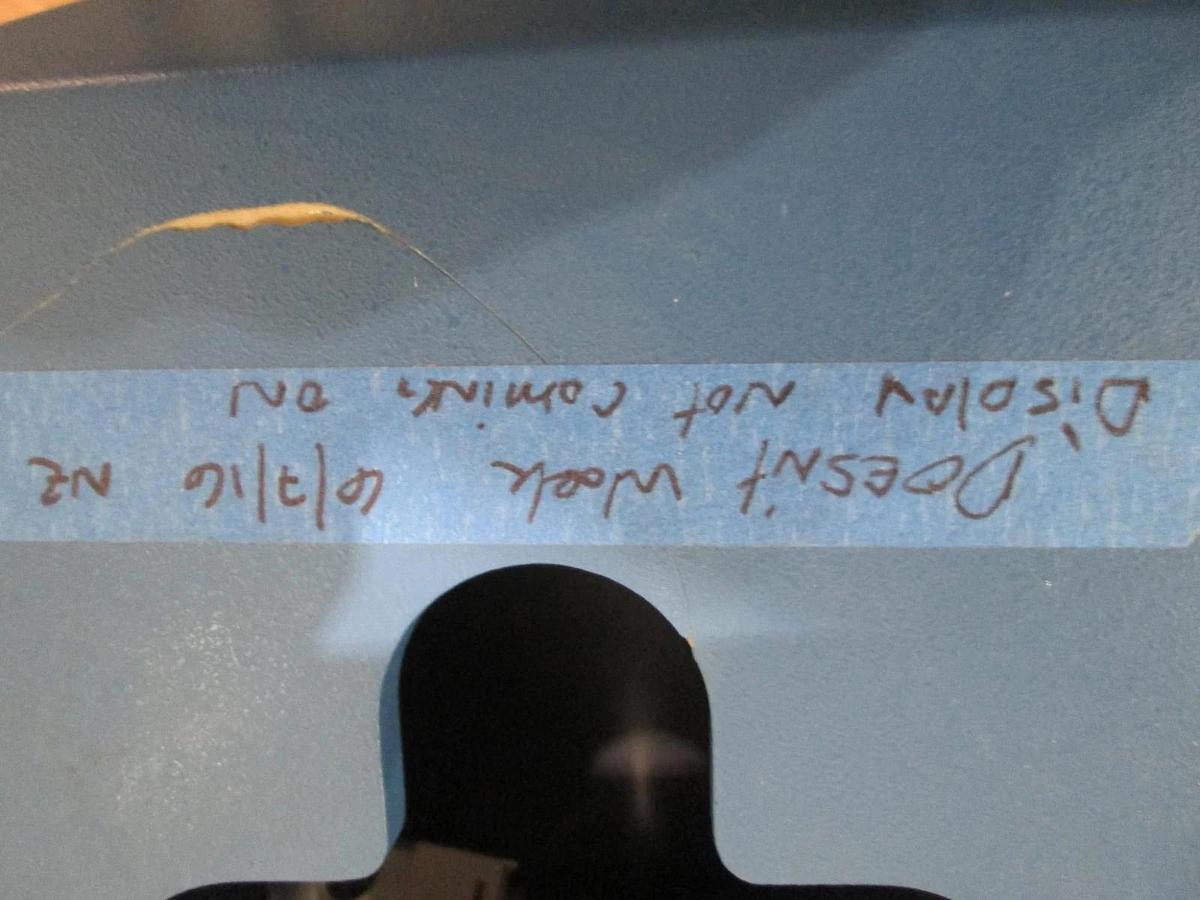 DOESN't Work 6/7/16
Display Not coming ON